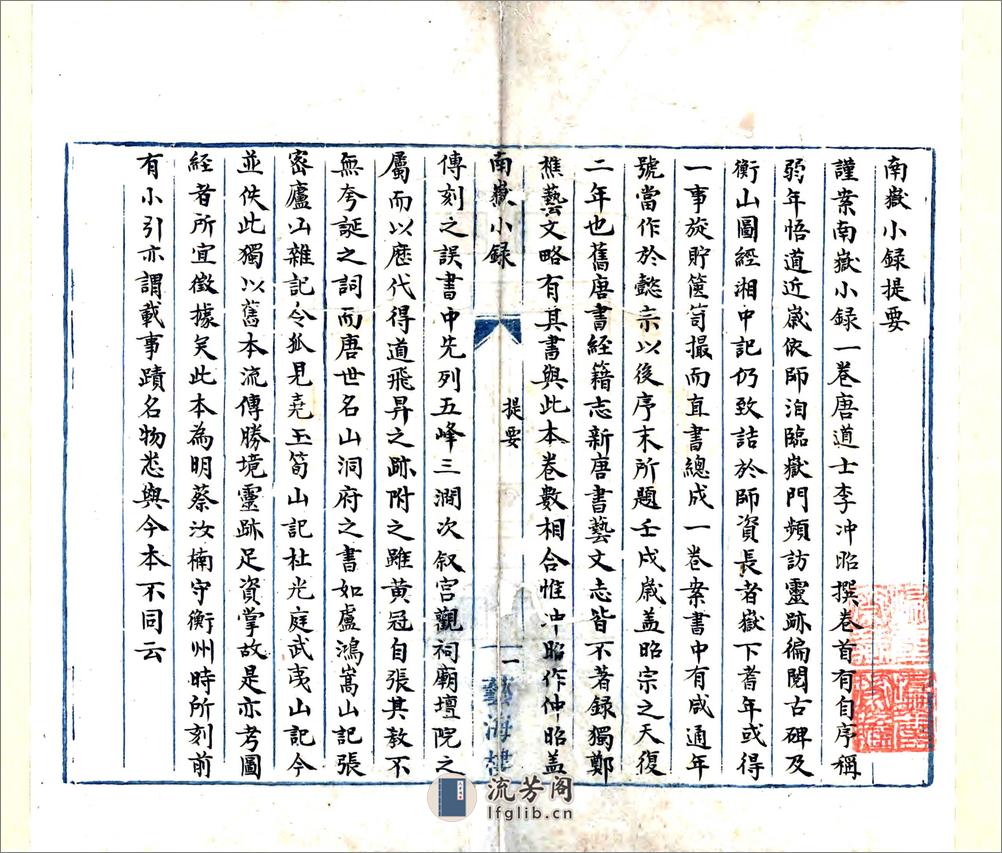 南嶽小録提要
謹案南嶽小録一卷唐道士李冲昭撰卷首有自序稱
弱年悟道近嵗依師洎臨嶽門頻訪靈跡徧閲古碑及
衡山圖經湘中記仍致詰於師資長者嶽下耆年或得
一事旋貯篋笥撮而直書總成一卷案書中有咸通年
號當作於懿宗以後序末所題壬戌嵗盖昭宗之天復
二年也舊唐書經籍志新唐書藝文志皆不著録獨鄭
樵藝文略有其書與此本卷數相合惟冲昭作仲昭盖
南嶽小録
提要
一
藝海樓
傳刻之誤書中先列五峰三澗次叙宫觀祠廟壇院之
屬而以歴代得道飛昇之跡附之雖黄冠自張其教不
無夸誕之詞而唐世名山洞府之書如盧鴻嵩山記張
宻廬山雜記令狐見堯玉笥山記杜光庭武夷山記今
並佚此獨以舊本流傳勝境靈跡足資掌故是亦考圖
經者所宜徴據矣此本為明蔡汝楠守衡州時所刻前
有小引亦謂載事蹟名物悉與今本不同云
流芳阁
lfglib.cn